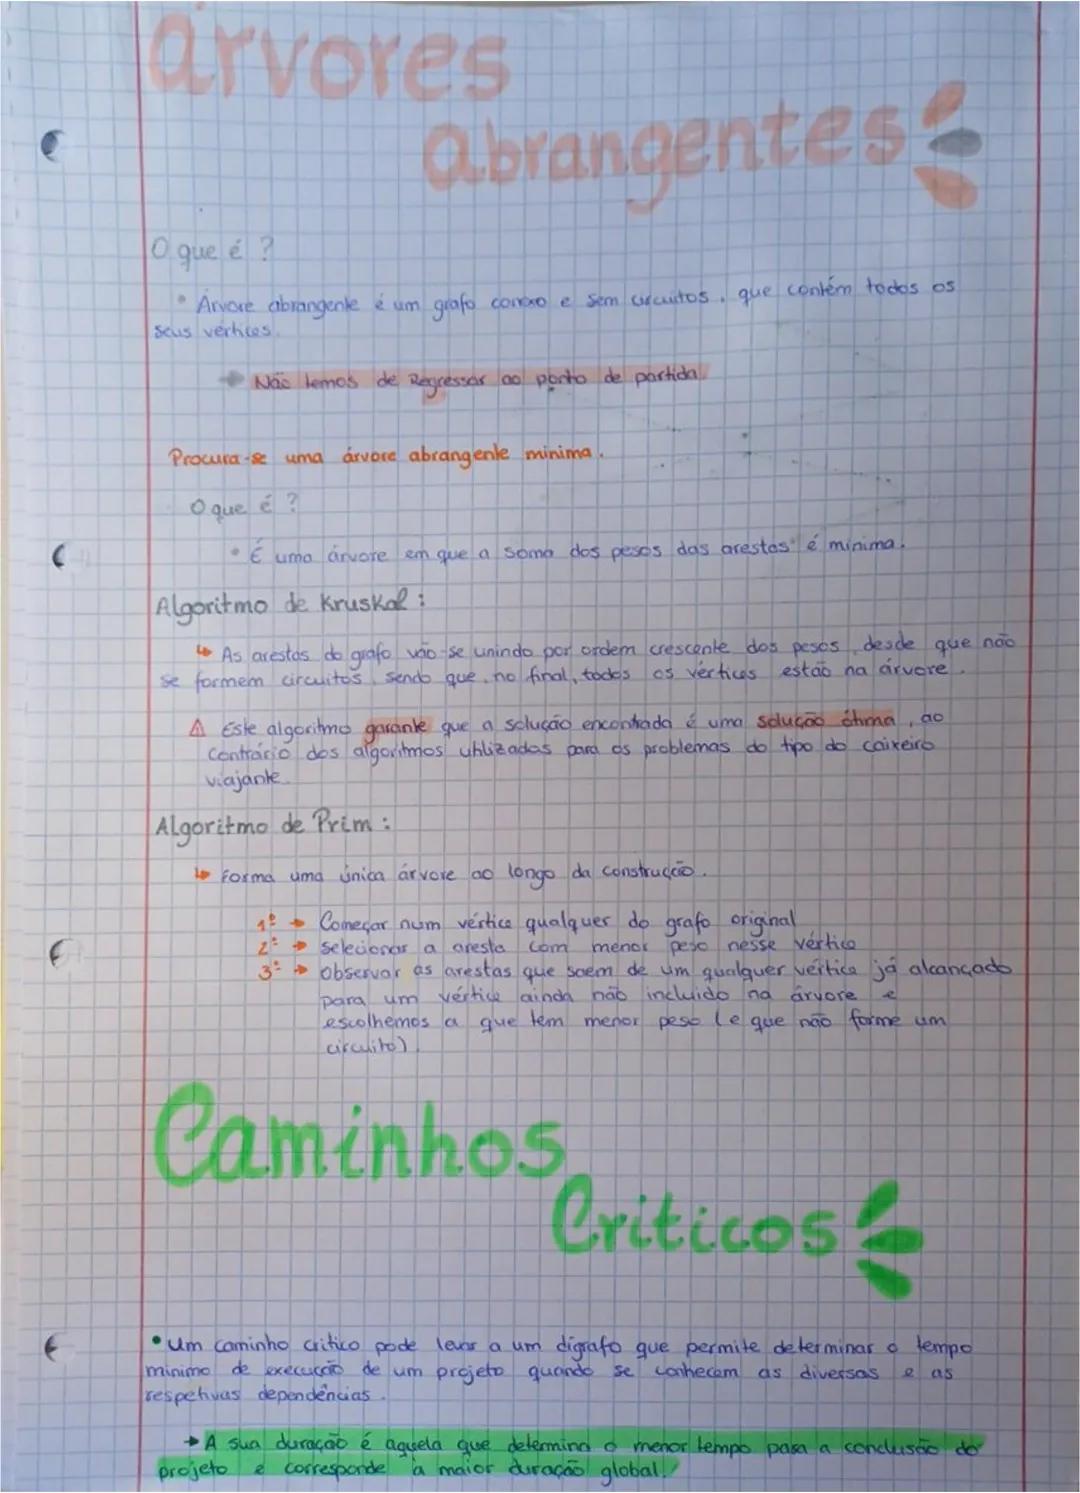 árvores
abrangentes
O que é ?
• Árvore abrangente é um grafo conexo e sem circuitos, que contém todos os
seus vértices.
→ Não temos de Regressar ao ponto de partida.
Procura-se uma árvore abrangente minima.
O que é ?
• É uma árvore em que a soma dos pesos das arestas é mínima.
Algoritmo de Kruskal :
↳ As arestas do grafo vão-se unindo por ordem crescente dos pesos, desde que não
se formem circuitos, sendo que, no final, todos os vértices estão na árvore.
⚠ Este algoritmo garante que a solução encontrada é uma solução ótima, ao
contrário dos algoritmos utilizados para os problemas do tipo do caixeiro
viajante.
Algoritmo de Prim :
↳ Forma uma única árvore ao longo da construção.
1º → Começar num vértice qualquer do grafo original
2º → Selecionar a aresta com menor peso nesse vértice
3º → Observar as arestas que saem de um qualquer vértice já alcançado
para um vértice ainda não incluido na árvore e
escolhemos a que tem menor peso (e que não forme um
circuito).
Caminhos
Criticos
• Um caminho critico pode levar a um dígrafo que permite determinar o tempo
mínimo de execução de um projeto quando se conhecem as diversas e as
respetivas dependências.
→ A sua duração é aquela que determina o menor tempo para a conclusão do
projeto e corresponde à maior duração global!